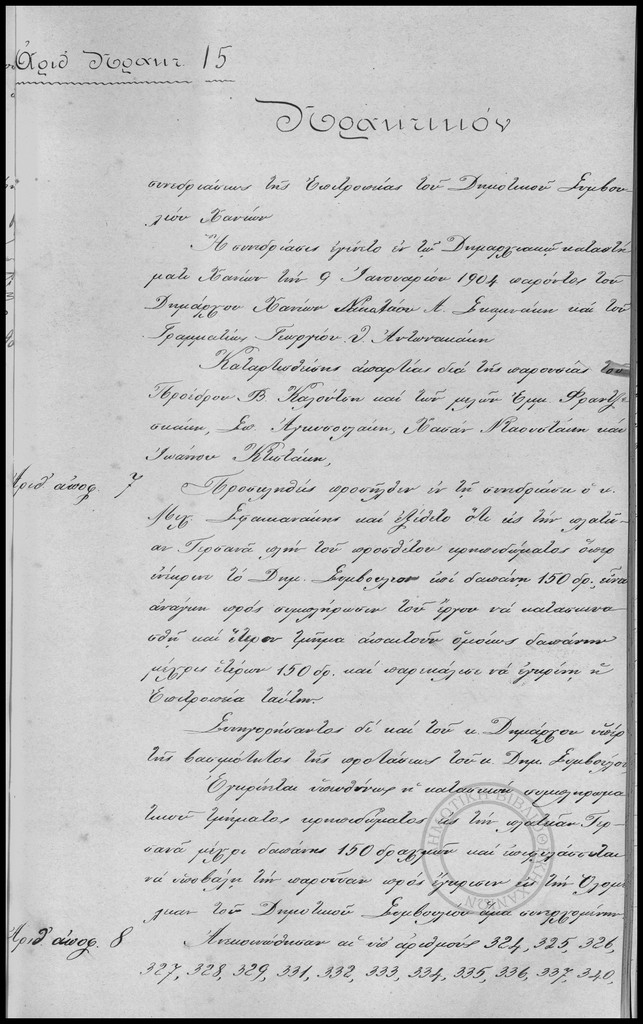 Ἀριθ Πρακτ. 15
Πρακτικόν
συνεδριάσεως τῆς Ἐπιτροπείας τοῦ Δημοτικοῦ Συμβου-
λίου Χανίων
Ἡ συνεδρίασις ἐγένετο ἐν τῷ Δημαρχιακῷ καταστή-
ματι Χανίων τὴν 9 Ἰανουαρίου 1904 παρόντος τοῦ
Δημάρχου Χανίων Νικολάου Α. Σκαμνάκη καὶ τοῦ
Γραμματέως Γεωργίου Ἀντωνακάκη
Καταρτισθείσης ἀπαρτίας διὰ τῆς παρουσίας τοῦ
Προέδρου Β. Καλούτση καὶ τῶν μελῶν Ἐμμ. Φραντζε-
σκάκη, Σπ. Χασὰν καὶ
Ἰωάννου
Ἀριθ ἀποφ. 7
Προσκληθεὶς προσῆλθεν ἐν τῇ συνεδριάσει ὁ κ.
Μιχ. Σφακιανάκης καὶ ἐξέθετο ὅτι εἰς τὴν πλατεῖ-
αν Τερσανᾶ πλὴν τοῦ προσθέτου κρηπιδώματος ὅπερ
ἐνέκρινε τὸ Δημ. Συμβούλιον ἐπὶ δαπάνῃ 150 δρ.
ἀνάγκη πρὸς συμπλήρωσιν τοῦ ἔργου νὰ κατασκευα-
σθῇ καὶ ἕτερον τμῆμα ἀπαιτοῦν ὁμοίως δαπάνην
μέχρις ἑτέρων 150 δρ. καὶ παρεκάλεσε νὰ ἐγκρίνῃ ἡ
Ἐπιτροπεία ταύτην.
Συνηγορήσαντος δὲ καὶ τοῦ κ Δημάρχου ὑπὲρ
τῆς βασιμότητος τῆς προτάσεως τοῦ κ. Δημ. Συμβούλου
Ἐγκρίνεται ὑπευθύνως ἡ κατασκευὴ συμπληρωμα-
τικοῦ τμήματος κρηπιδώματος εἰς τὴν πλατεῖαν Τερ-
σανᾶ μέχρι δαπάνης 150 δραχμῶν καὶ ἐπιφυλάσσεται
νὰ ὑποβάλῃ τὴν παροῦσαν πρὸς ἔγκρισιν εἰς τὴν Ὁλομέ-
λειαν τοῦ Δημοτικοῦ Συμβουλίου ἅμα συνερχομένην.
Ἀριθ ἀποφ. 8
Ἀνεκοινώθησαν αἱ ὑπ' ἀριθμοὺς 324, 325, 326,
327, 328, 329, 331, 332, 333, 334, 335, 336, 337, 340,
ΔΗΜΟΤΙΚΗ ΒΙΒΛΙΟΘΗΚΗ ΧΑΝΙΩΝ